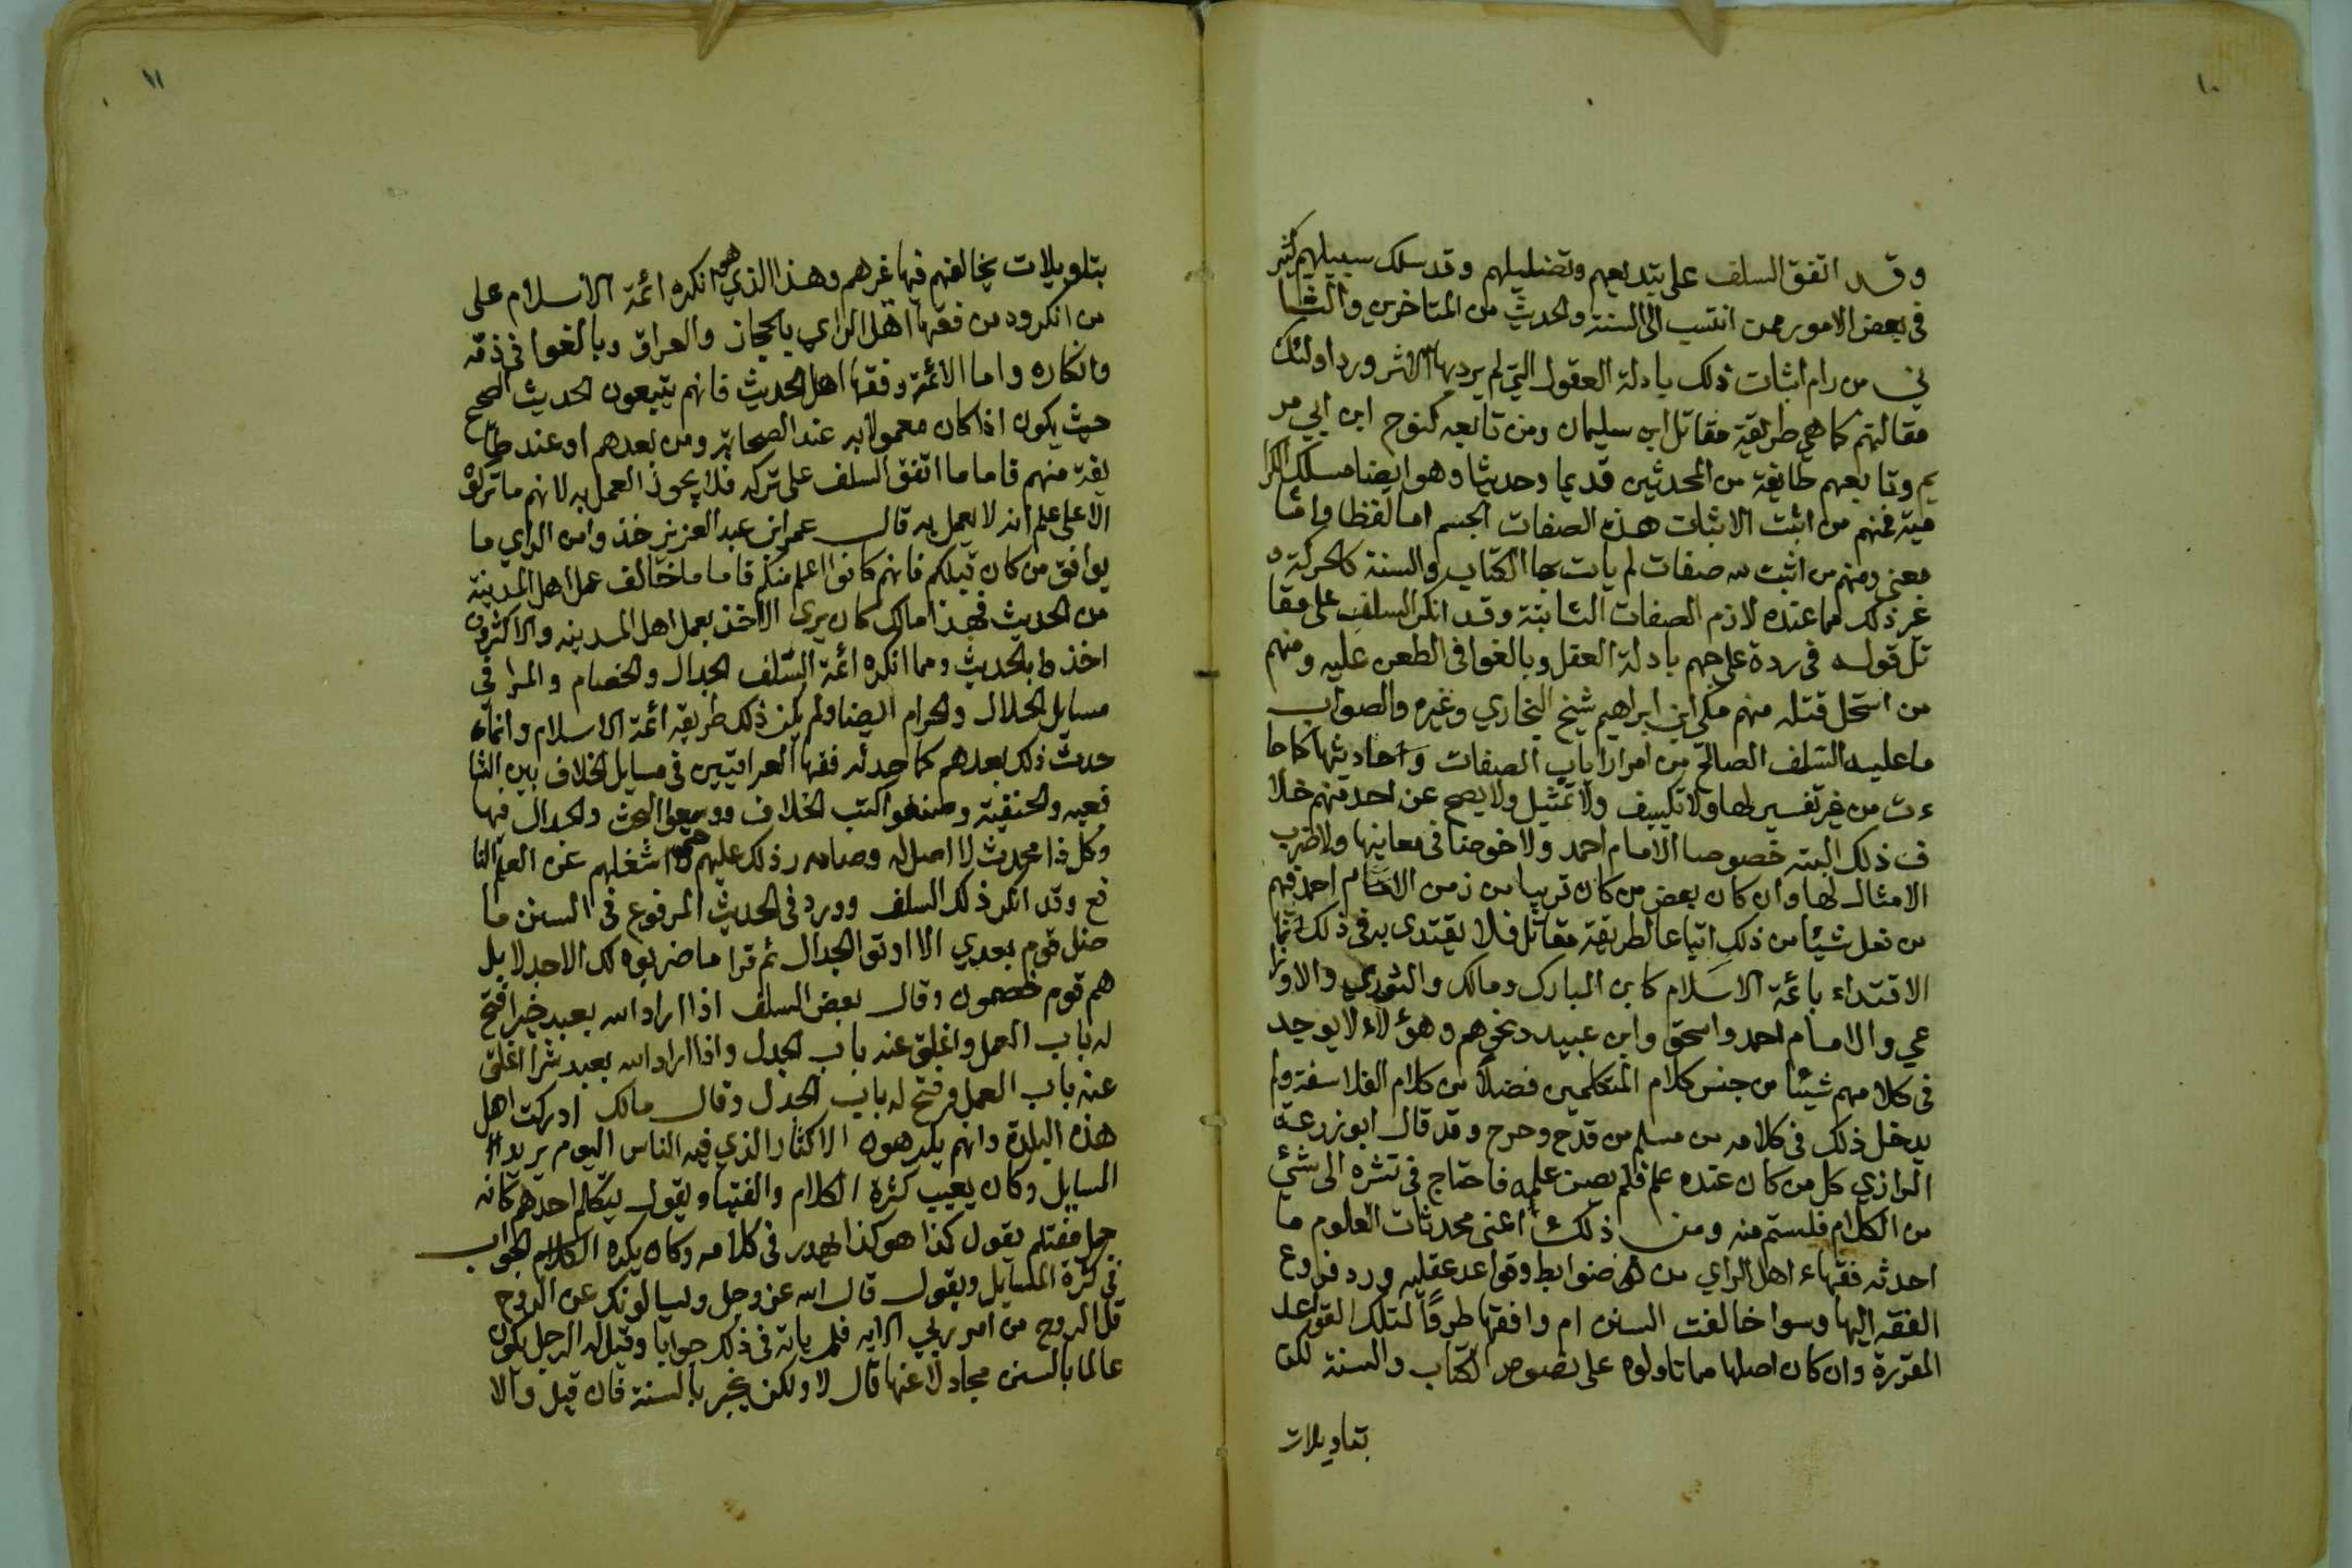 ١٠
وقد اتفق السلف على تبديعهم وتضليلهم وقد سلك سبيلهم كثير
في بعض الامور ممن انتسب الى السنة والحديث من المتاخرين والثا
ني من رام اثبات ذلك بادلة العقول التي لم يرد بها الاثر ورد اولئك
مقالتهم كما هي طريقة مقاتل ابن سليمان ومن تابعه كنوح ابن ابي مر
يم وتابعهم طايفة من المحدثين قديما وحديثا وهو ايضا مسلك الكرا
مية فمنهم من اثبت الاثبات هذه الصفات الجسم اما لفظا واما
معنى ومنهم من اثبت لله صفات لم يات بها الكتاب والسنة كالحركة و
غير ذلك مما عنده لازم الصفات الثابتة وقد انكر السلف على مقا
تل قوله في ردة على جهم بادلة العقل وبالغوا في الطعن عليه ومنهم
من استحل قتله منهم مكي ابن ابراهيم شيخ البخاري وغيره والصواب
ما عليه السلف الصالح من امرار اياب الصفات واحاديثها كما جا
ءت من غير تفسير لها ولا تكييف ولا تمثيل ولا يصح عن احد منهم خلا
ف ذلك البته خصوصا الامام احمد ولا خوضا في معانيها ولا ضرب
الامثال لها وان كان بعض من كان قريبا من زمن الامام احمد فيهم
من فعل شيئا من ذلك اتباعا لطريقة مقاتل فلا يقتدى به في ذلك انما
الاقتداء بائمة الاسلام كابن المبارك ومالك والثوري والاوزا
عي والامام احمد واسحق وابي عبيد ونحوهم وهؤلاء لا يوجد
في كلامهم شيئا من جنس كلام المتكلمين فضلا من كلام الفلاسفة ولم
يدخل ذلك في كلامه من مسلم من قدح وجرح وقد قال ابو زرعة
الرازي كل من كان عنده علم فلم يصن علمه فاحتاج في نشره الى شئ
من الكلام فلستم منه ومن ذلك اعنى محدثات العلوم ما
احدثه فقهاء اهل الراي من ضوابط وقواعد عقليه ورد فروع
الفقه اليها وسوا خالفت السنن ام وافقتها طردًا لتلك القواعد
المقررة وان كان اصلها مما تاولوه على نصوص الكتاب والسنة لكن
بتاويلات
١١
بتلويلات يخالفهم فيها غرهم وهذا الذي هو انكره ائمة الاسلام على
من انكروه من فقها اهل الراي بالحجاز والعراق وبالغوا في ذمه
وانكاره واما الائمة وفقها اهل الحديث فانهم يتبعون الحديث الصحيح
حيث يكون اذا كان معمولا به عند الصحابة ومن بعدهم او عند طا
يفة منهم فاما ما اتفق السلف على تركه فلا يجوز العمل به لانهم ما تركوه
الا على علم انه لا يعمل به قال عمر ابن عبد العزيز خذوا من الراي ما
يوافق من كان قبلكم فانهم كانوا اعلم منكم فاما ما خالف عمل اهل المدينة
من الحديث فهذا مالك كان يرى الاخذ بعمل اهل المدينه والاكثرون
اخذوا بالحديث ومما انكره ائمة السلف الجدال والخصام والمرا في
مسايل الحلال والحرام ايضا ولم يكن ذلك طريقة ائمة الاسلام وانماء
حدث ذلك بعدهم كما حدثه فقها العراقيين في مسايل الخلاف بين الشا
فعيه والحنفية وصنفوا كتب الخلاف ووسعوا البحث والجدال فيها
وكل ذا محدث لا اصل له وصار ذلك علمهم حتى اشغلهم عن العلم النا
فع وقد انكر ذلك السلف وورد في الحديث المرفوع في السنن ما
ضل قوم بعدي الا اوتوا الجدال ثم قرا ما ضربوه لك الا جدلا بل
هم قوم خصمون وقال بعض السلف اذا اراد الله بعبد خيرا فتح
له باب العمل واغلق عنه باب الجدل واذا اراد الله بعبد شرا اغلق
عنه باب العمل وفتح له باب الجدل وقال مالك ادركت اهل
هذه البلدة وانهم يكرهون الاكثار الذي فيه الناس اليوم يريد
المسايل وكان يعيب كثرة الكلام والفتيا ويقول يتكلم احدهم كانه
جمل مغتلم يقول كذا هو كذا يهدر في كلامه وكان يكره الكلام الجواب
في كثرة المسايل ويقول قال الله عز وجل ويسالونك عن الروح
قل الروح من امر ربي الايه فلم ياته في ذلك جوابا وقيل له الرجل يكون
عالما بالسنن مجادلا عنها قال لا ولكن يخبر بالسنة فان قيل والا